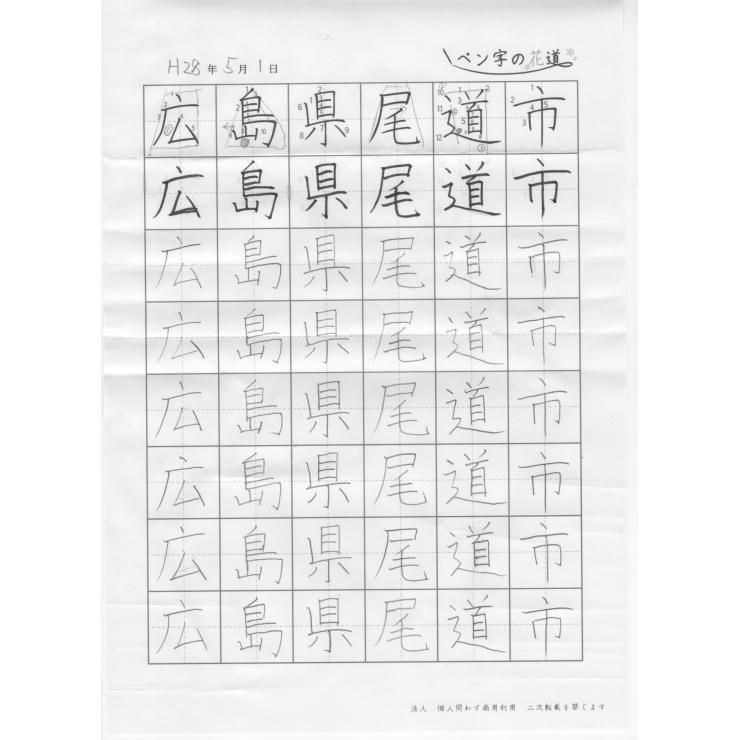 H28年5月1日
ペン字の花道
広島県尾道市
広島県尾道市
広島県尾道市
広島県尾道市
広島県尾道市
広島県尾道市
広島県尾道市
広島県尾道市
法人 個人問わず商用利用 二次転載を禁じます